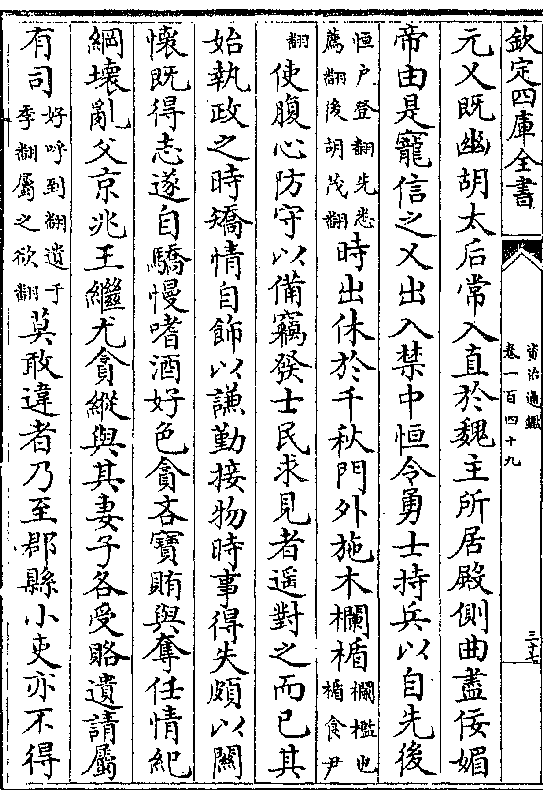 欽定四庫全書
資治通鑑
卷一百四十九
三十七
元乂既幽胡太后常入直於魏主所居殿側曲盡佞媚
帝由是寵信之乂出入禁中恒令勇士持兵以自先後
恒户登翻先悉薦翻後胡茂翻時出休於千秋門外施木欄楯欄檻也楯食尹
翻使腹心防守以備竊發士民求見者遥對之而已其
始執政之時矯情自飾以謙勤接物時事得失頗以關
懷既得志遂自驕慢嗜酒好色貪吝寶賄與奪任情紀
綱壞亂父京兆王繼尤貪縱與其妻子各受賂遺請屬
有司好呼到翻遺于季翻屬之欲翻莫敢違者乃至郡縣小吏亦不得